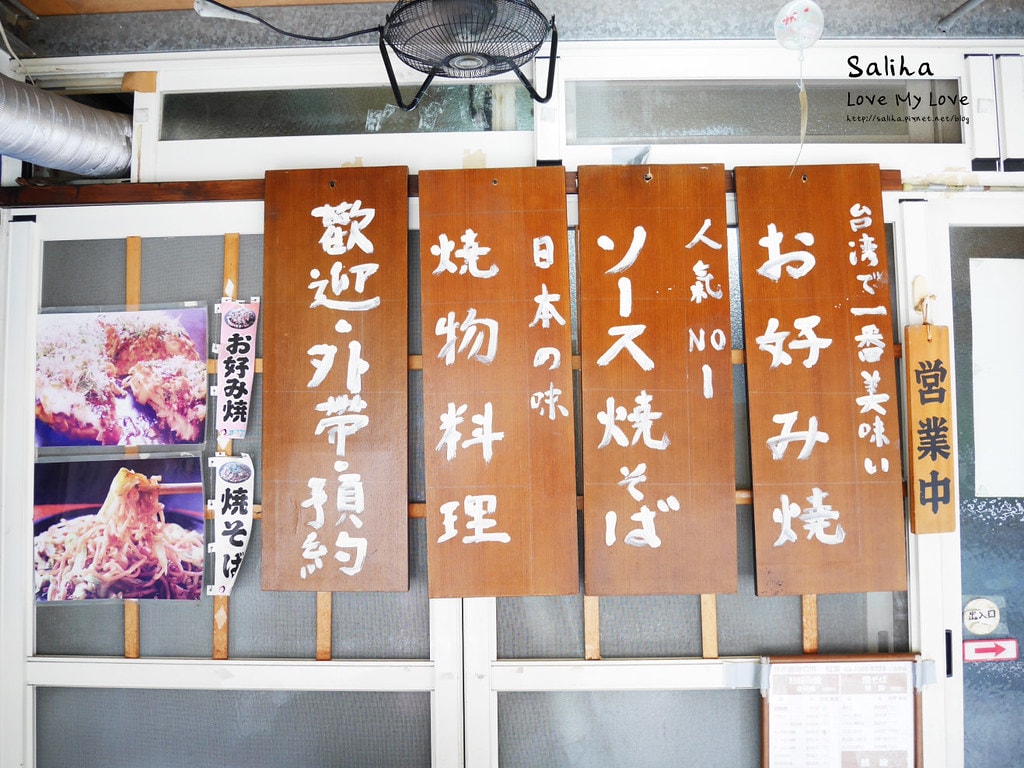 Saliha
Love My Love
http://saliha.pixnet.net/blog
台湾で一番美味い
お好み焼
人氣NO1
ソース焼そば
日本の味
焼物料理
歡迎・外帶・預約
営業中
お好み焼
焼そば
出入口